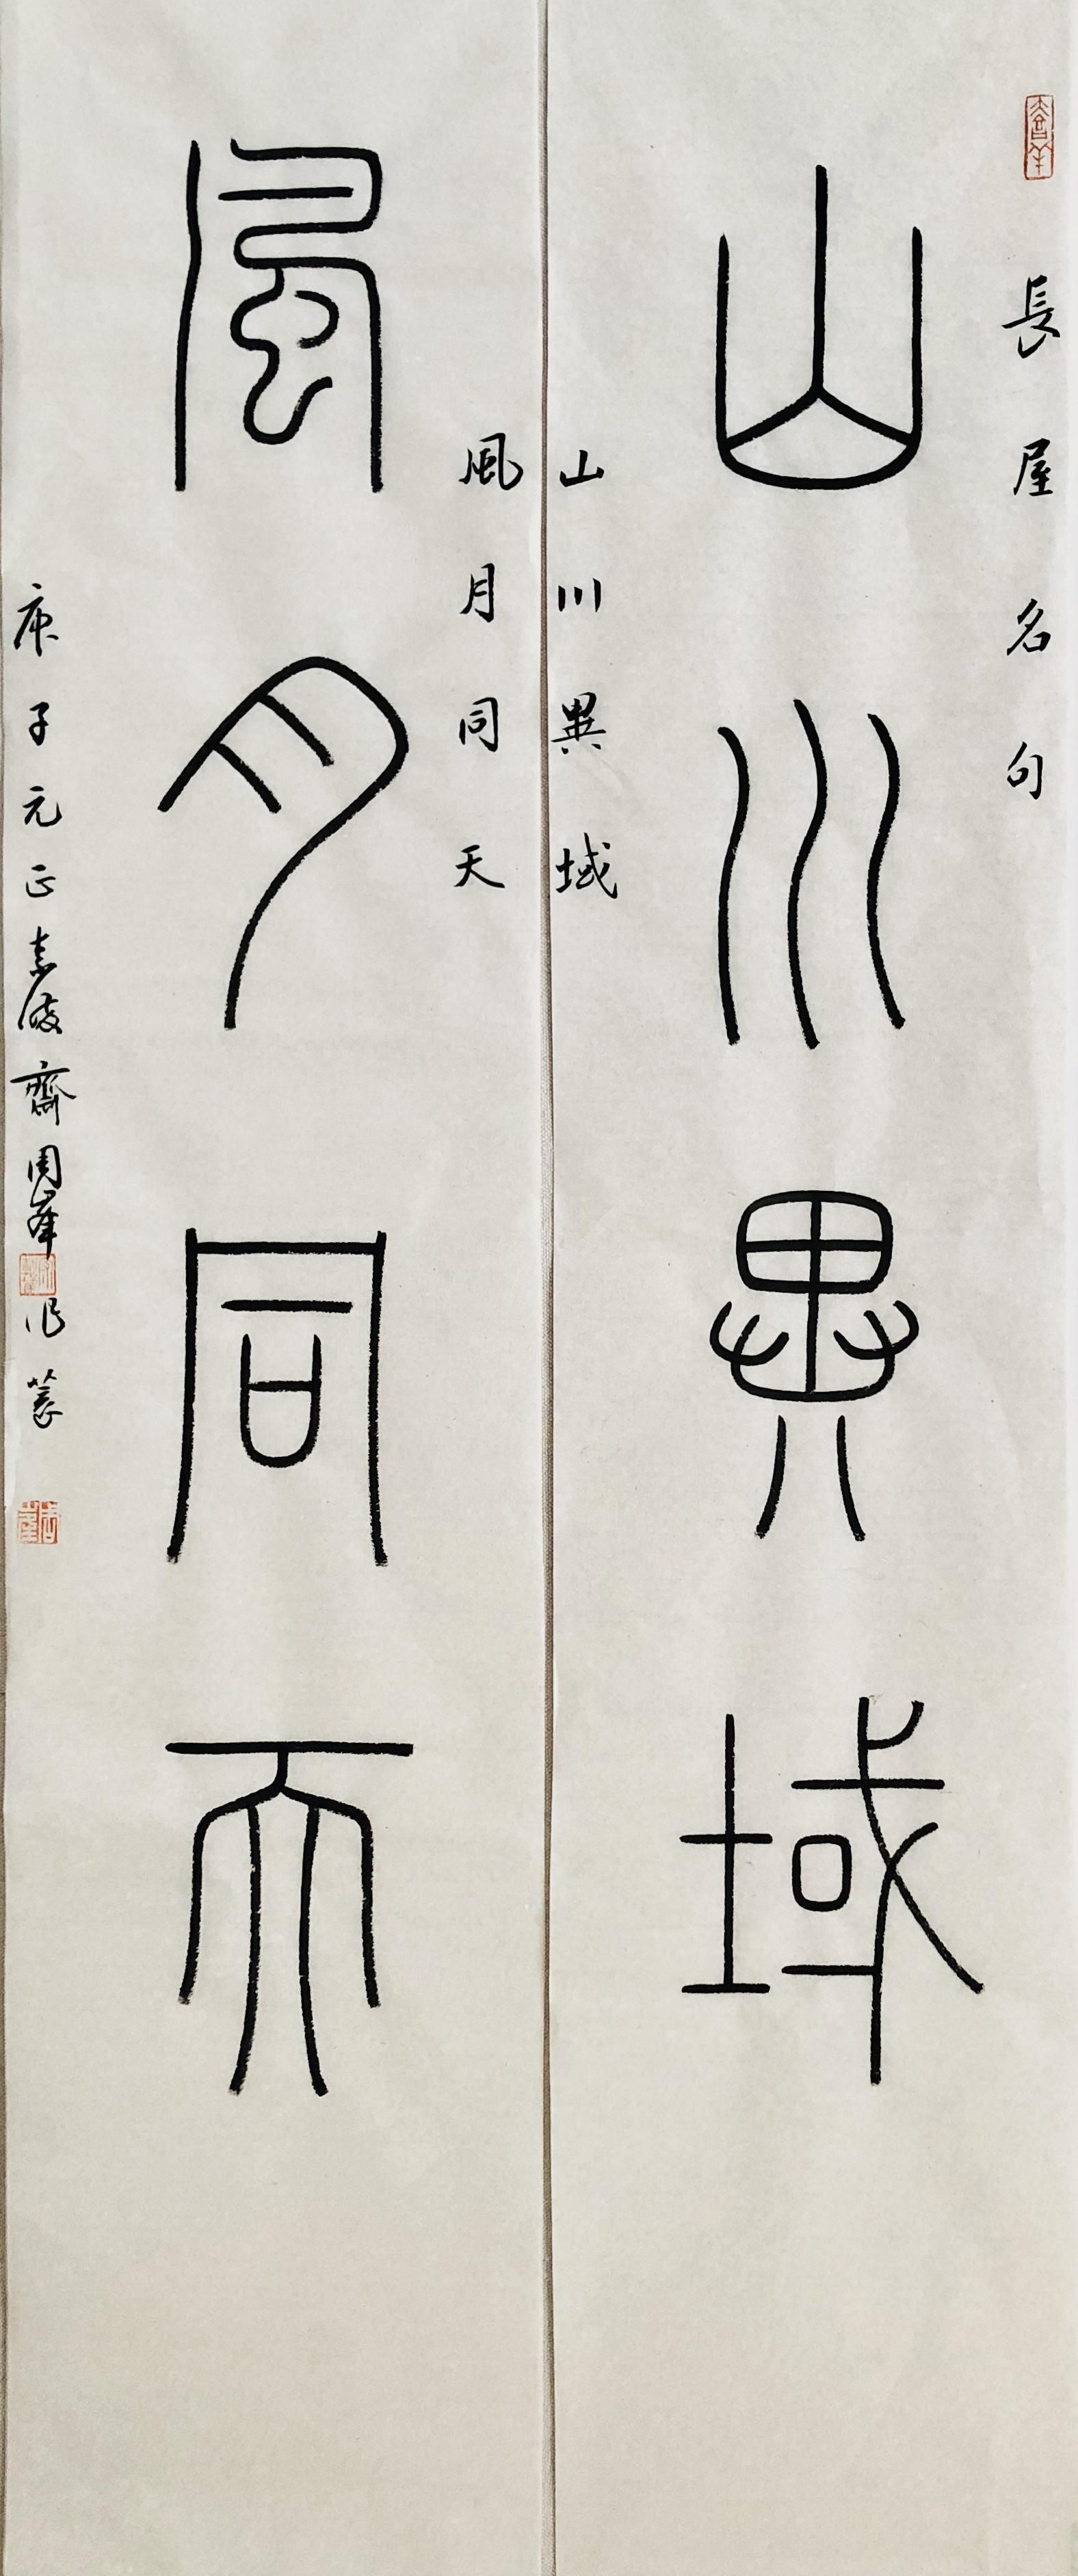 長屋名句
山川異域
山川異域
風月同天
風月同天
庚子元正 齋周峰作篆